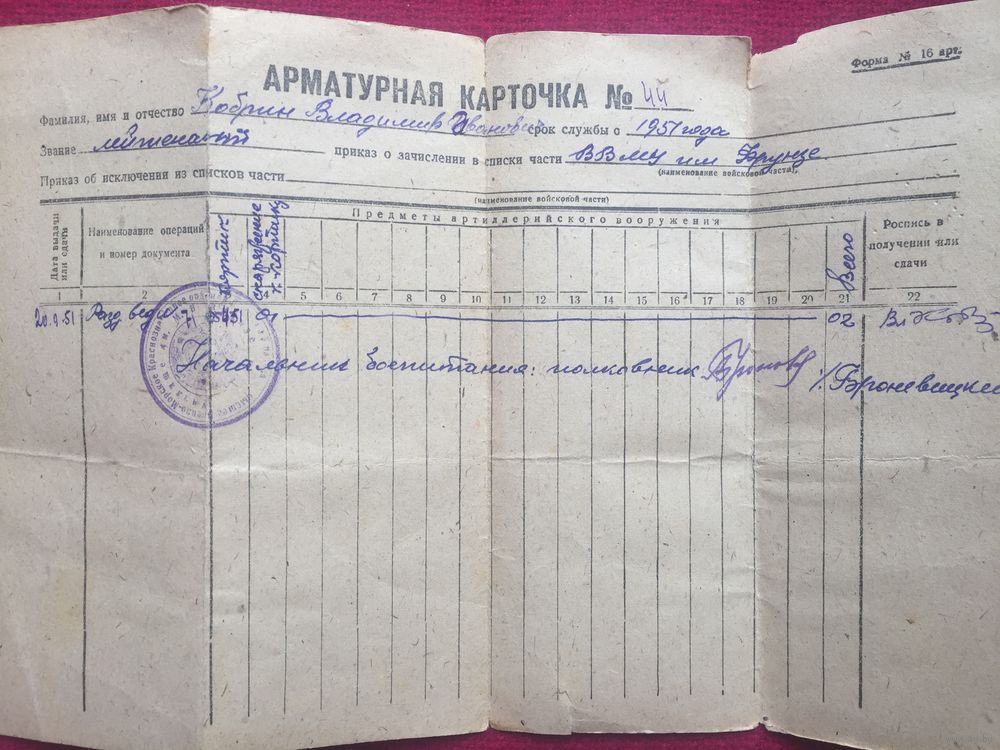 Форма № 16 арт.
АРМАТУРНАЯ КАРТОЧКА № 44
Фамилия, имя и отчество Кобрин Владимир Иванович срок службы с 1951 года
Звание лейтенант приказ о зачислении в списки части ВВМУ им Фрунзе
(наименование войсковой части)
Приказ об исключении из списков части
(наименование войсковой части)
Дата выдачи или сдачи
Наименование операций и номер документа
кортик
снаряжение к кортику
Предметы артиллерийского вооружения
Всего
Роспись в получении или сдачи
1 2 4 5 6 7 8 9 10 11 12 13 14 15 16 17 18 19 20 21 22
20.9.51 Разд. вед 01 02
Начальник воспитания: полковник /Броневицкий